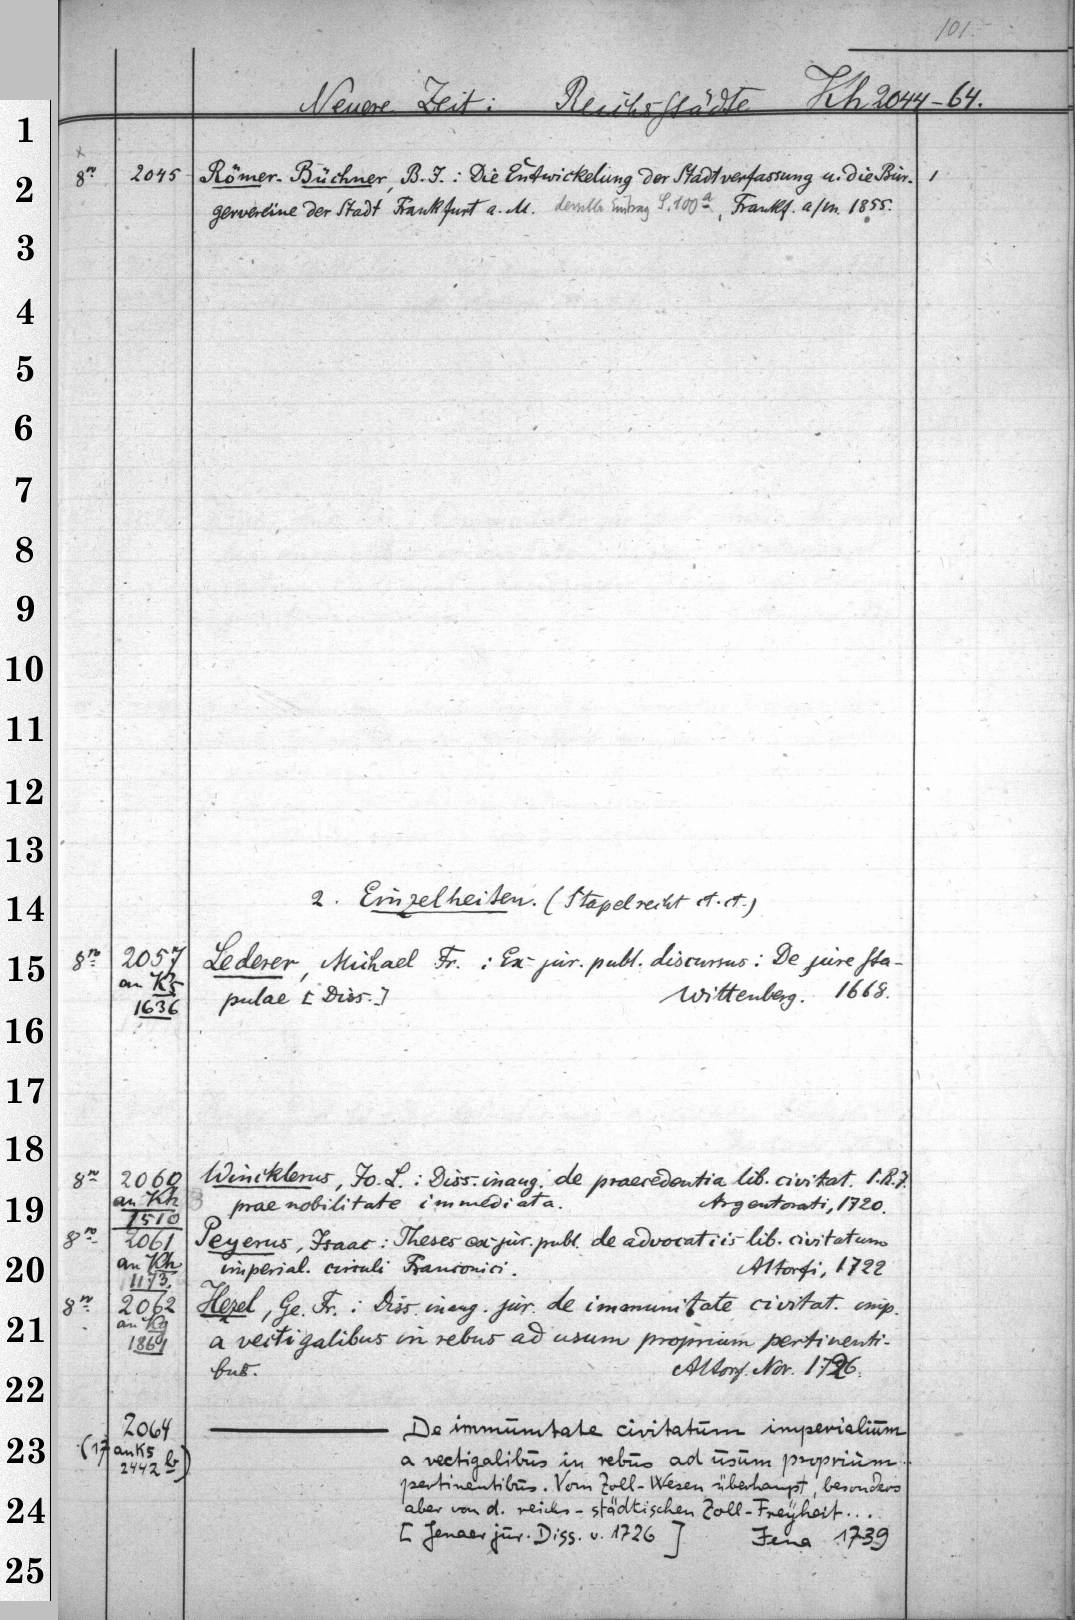 101.
Neuere Zeit: Reichsstädte Kh 2044-64.
8º 2045 Römer-Büchner, B. J.: Die Entwickelung der Stadtverfassung u. die Bür- 1
gervereine der Stadt Frankfurt a. M. derselbe Eintrag S. 100a, Frankf. a/m. 1855.
2. Einzelheiten. (Stapelrecht et. ct.)
8º 2057 Lederer, Michael Fr.: Ex jur. publ. discursus: De jure sta-
an K5 1636 pulae [Diss.] Wittenberg. 1668.
8º 2060 Wincklerus, Jo. L.: Diss. inaug. de praecedentia lib. civitat. S.R.J.
an Kh 1510 prae nobilitate immediata. Argentorati, 1720.
8º 2061 Peyerus, Isaac: Theses ex jur. publ. de advocatiis lib. civitatum
an Kh 1173. imperial. circuli Franconici. Altorfi, 1722
8º 2062 Hezel, Ge. Fr.: Diss. inaug. jur. de immunitate civitat. imp.
an Kg 1869 a vectigalibus in rebus ad usum proprium pertinenti-
bus. Altorf. Nor. 1726.
2064 ——— De immunitate civitatum imperialium
(17 an K5 a vectigalibus in rebus ad usum proprium
2442 b) pertinentibus. Vom Zoll-Wesen überhaupt, besonders
aber von d. reichs-städtischen Zoll-Freÿheit....
[Jenaer jur. Diss. v. 1726] Jena 1739
1
2
3
4
5
6
7
8
9
10
11
12
13
14
15
16
17
18
19
20
21
22
23
24
25